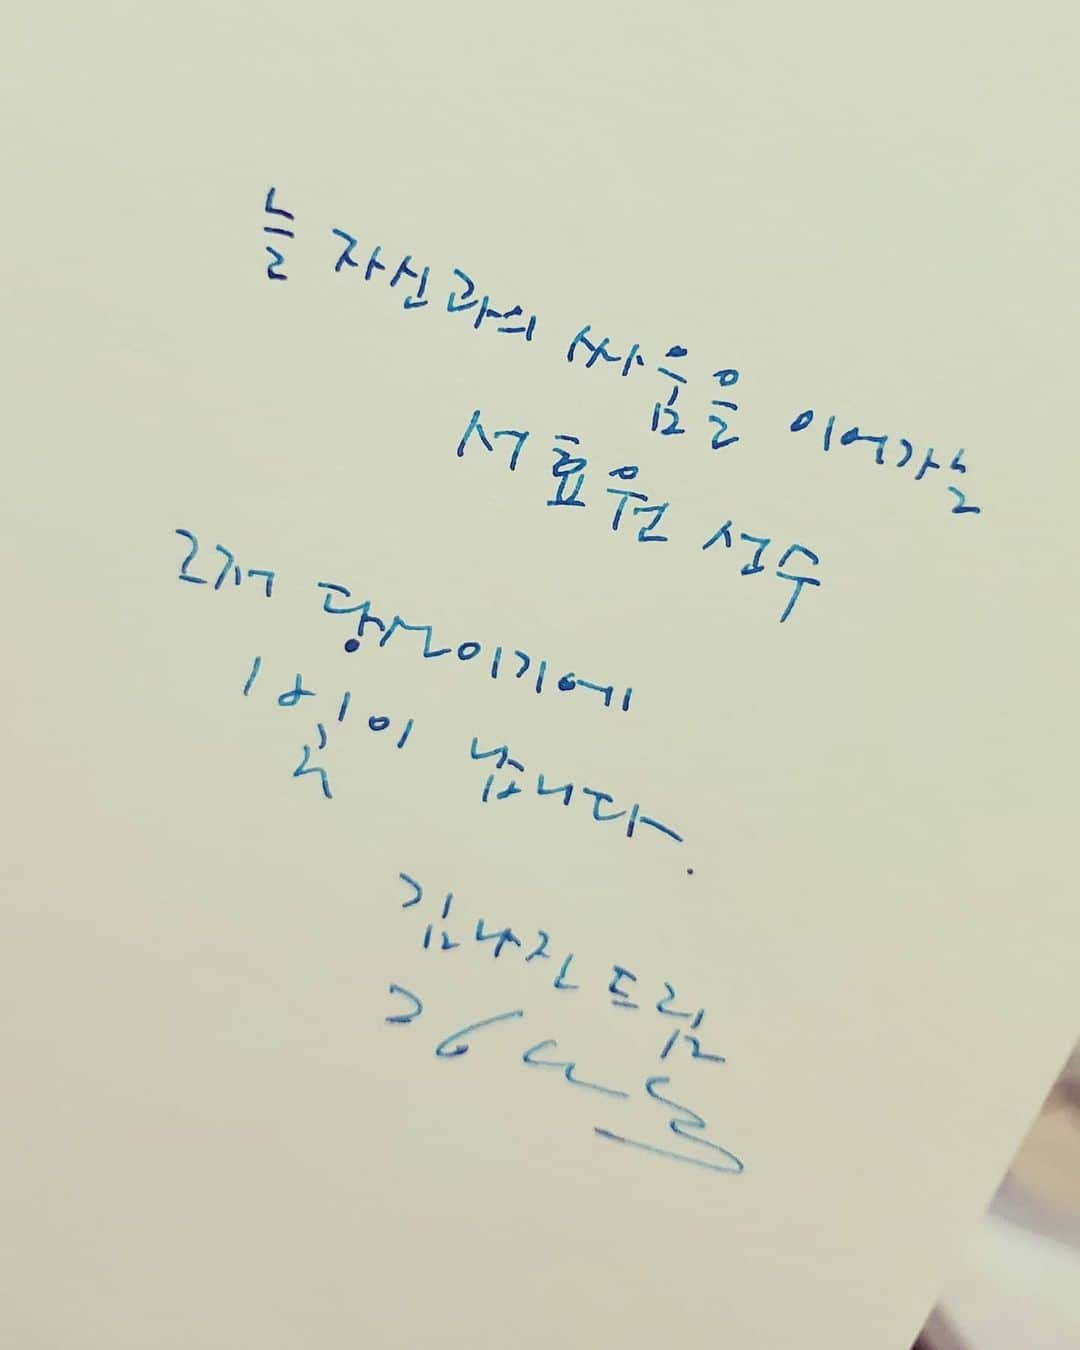 늘 자신과의 싸움을 이어가실
서효원 선수
그저 당신이기에
빛이 납니다.
김나진 드림